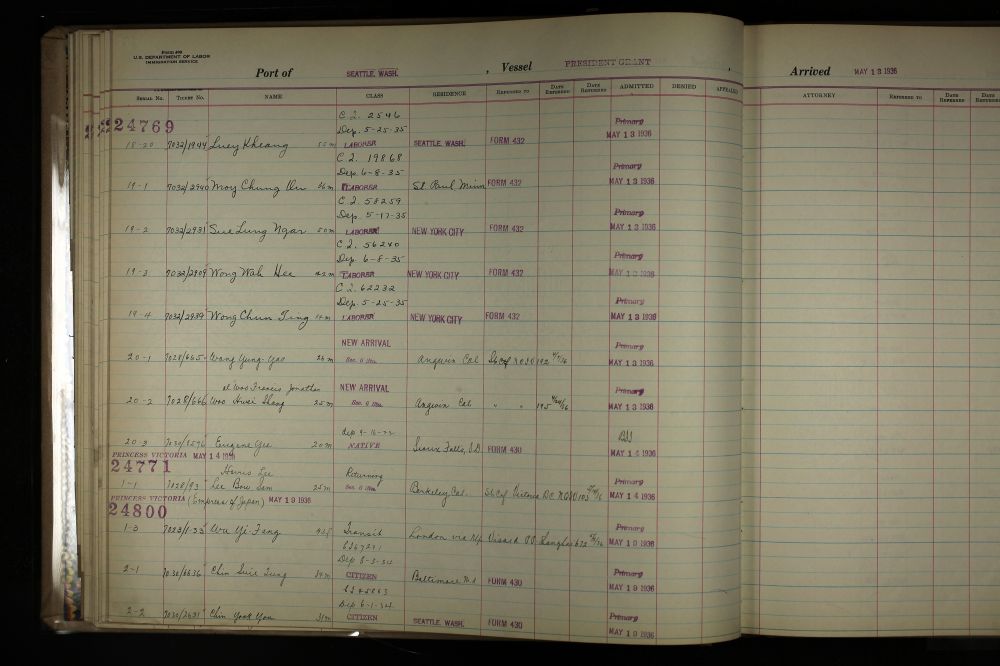 Form 500
U.S. DEPARTMENT OF LABOR
IMMIGRATION SERVICE
Port of SEATTLE, WASH. , Vessel PRESIDENT GRANT , Arrived MAY 13 1936
SERIAL NO. TICKET NO. NAME CLASS RESIDENCE REFERRED TO DATE REFERRED DATE REFERRED ADMITTED DENIED APPEALED ATTORNEY REFERRED TO DATE REFERRED DATE
24769 C.I. 2546 Primary
Dep. 5-25-35 MAY 13 1936
18-20 7032/1944 Luey Kheang 55m LABORER SEATTLE, WASH. FORM 432
C.I. 19868 Primary
Dep. 6-8-35 MAY 13 1936
19-1 7032/2940 Moy Chung 46m LABORER St. Paul Minn FORM 432
C.I. 58259 Primary
Dep. 5-17-35 MAY 13 1936
19-2 7032/2931 Sue Lung Ngar 50m LABORER NEW YORK CITY FORM 432
C.I. 56240 Primary
Dep. 6-8-35 MAY 13 1936
19-3 7032/2909 Wong Wah Hee 42m LABORER NEW YORK CITY FORM 432
C.I. 62232 Primary
Dep. 5-25-35
19-4 7032/2939 Wong Chun Ting 14m LABORER NEW YORK CITY FORM 432 MAY 13 1936
NEW ARRIVAL Primary
20-1 7028/665 Wong Yung-Yao 26m Sec. 6 Stu. Angwin Cal MAY 13 1936
al Woo Francis Jonathan NEW ARRIVAL Primary
20-2 7028/666 Woo Hwei Sheng 25m Sec. 6 Stu. Angwin Cal. " " MAY 13 1936
dep 9-16-22
20-3 7030/1596 Eugene Yee 20m NATIVE Sioux Falls, S.D. FORM 430 BSI
PRINCESS VICTORIA MAY 14 1936 MAY 14 1936
24771 Harris Lee Returning Primary
1-1 7028/93 Lee Bow Sem 25m Sec. 6 Stu. Berkeley Cal. Victoria BC MAY 14 1936
PRINCESS VICTORIA (Empress of Japan) MAY 19 1936
24800 Primary
1-3 7023/133 Wu Yi-Fang 43f Transit London via NY MAY 19 1936
Dep 8-3-34
2-1 7030/6636 Chin Suie Tung 39m CITIZEN Baltimore Md FORM 430 Primary
MAY 19 1936
Dep 6-1-34 Primary
2-2 7030/2631 Chin Yook You 31m CITIZEN SEATTLE, WASH. FORM 430 MAY 19 1936